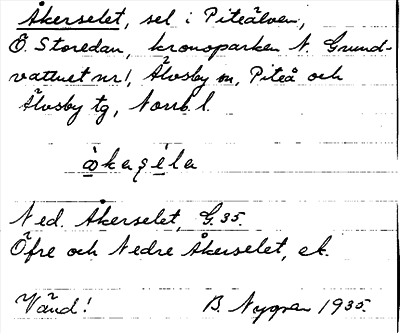 Åkerselet, sel i Piteälven,
Ö. Storedan, kronoparken N. Grund-
vattnet nr 1, Älvsby sn, Piteå och
Älvsby tg, Norrb. l.
Ned. Åkerselet, G. 35.
Öfre och Nedre Åkerselet, ek.
Vänd! B. Nygren 1935